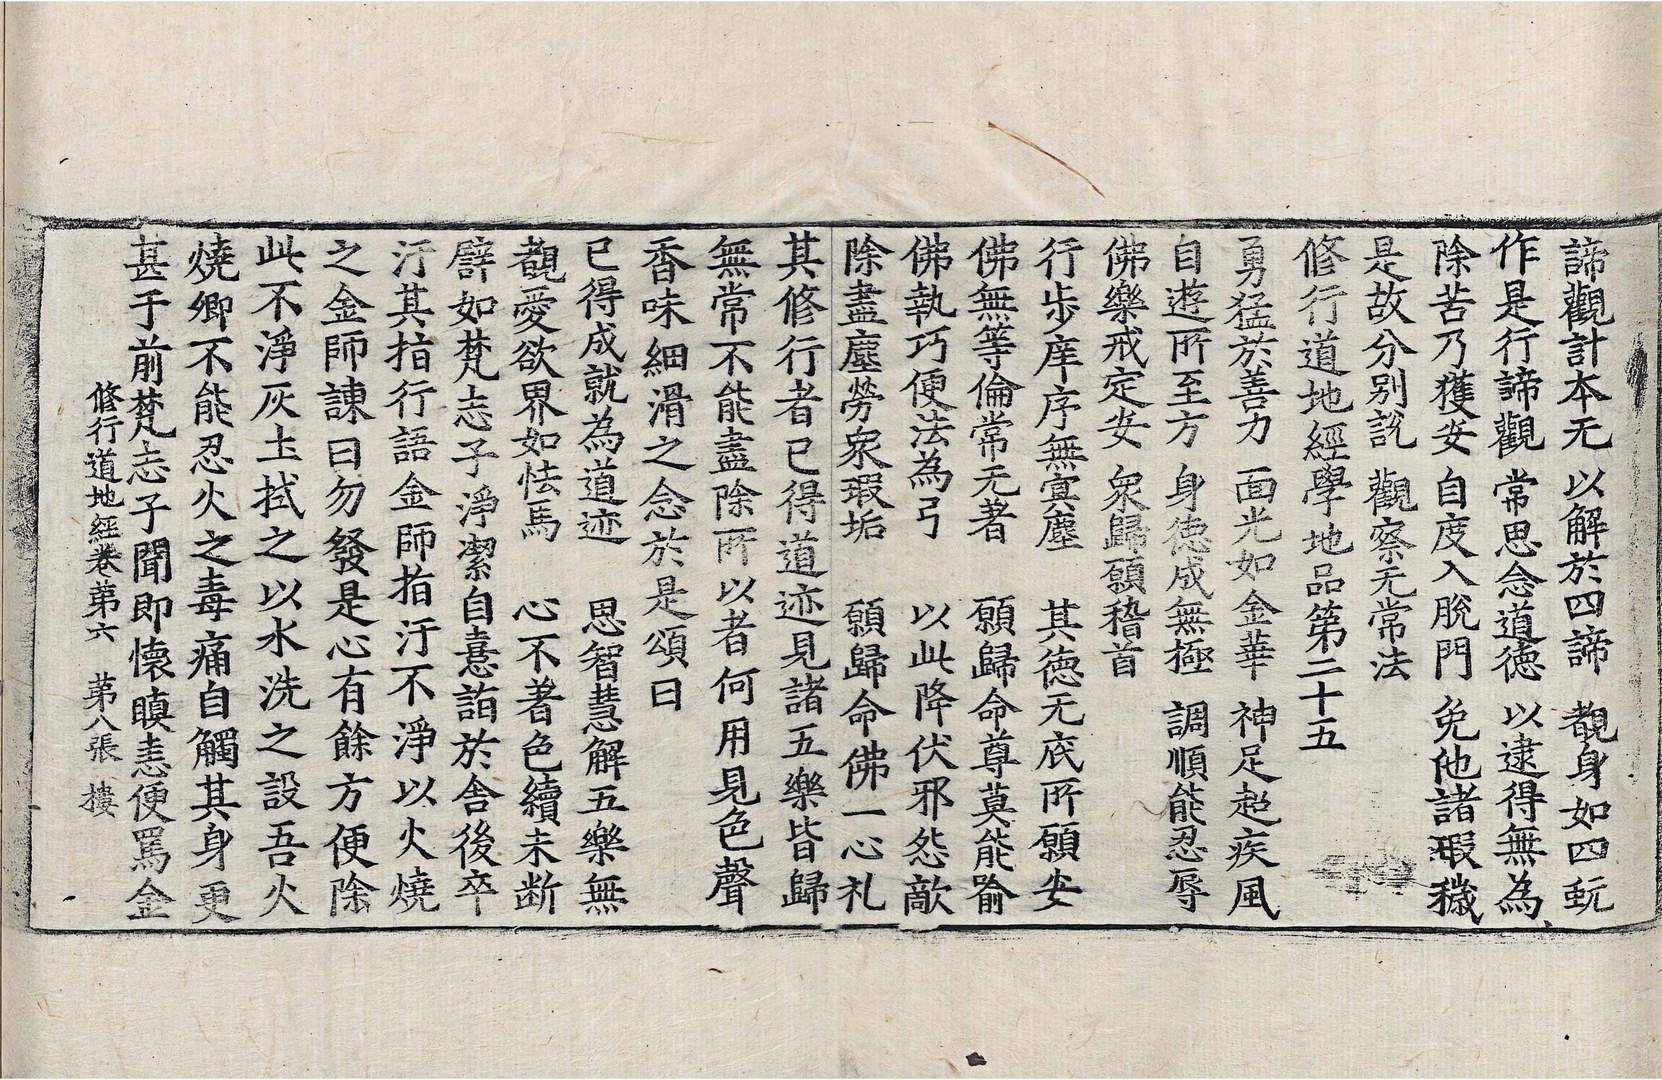 諦觀計本无 以解於四諦 覩身如四蚖
作是行諦觀 常思念道德 以逮得無為
除苦乃獲安 自度入脫門 免他諸瑕穢
是故分別說 觀察无常法
修行道地經學地品第二十五
勇猛於善力 面光如金華 神足超疾風
自遊所至方 身德成無極 調順能忍辱
佛樂戒定安 衆歸願稽首
行步庠序無冥塵 其德无底所願安
佛無等倫常无著 願歸命尊莫能踰
佛執巧便法為弓 以此降伏邪怨敵
除盡塵勞衆瑕垢 願歸命佛一心礼
其修行者已得道迹見諸五樂皆歸
無常不能盡除所以者何用見色聲
香味細滑之念於是頌曰
已得成就為道迹 思智慧解五樂無
覩愛欲界如怯馬 心不著色續未断
譬如梵志子淨潔自憙詣於舍後卒
汙其指行語金師指汙不淨以火燒
之金師諌曰勿發是心有餘方便除
此不淨灰土拭之以水洗之設吾火
燒卿不能忍火之毒痛自觸其身更
甚于前梵志子聞即懷瞋恚便罵金
修行道地経卷苐六 苐八張 樓